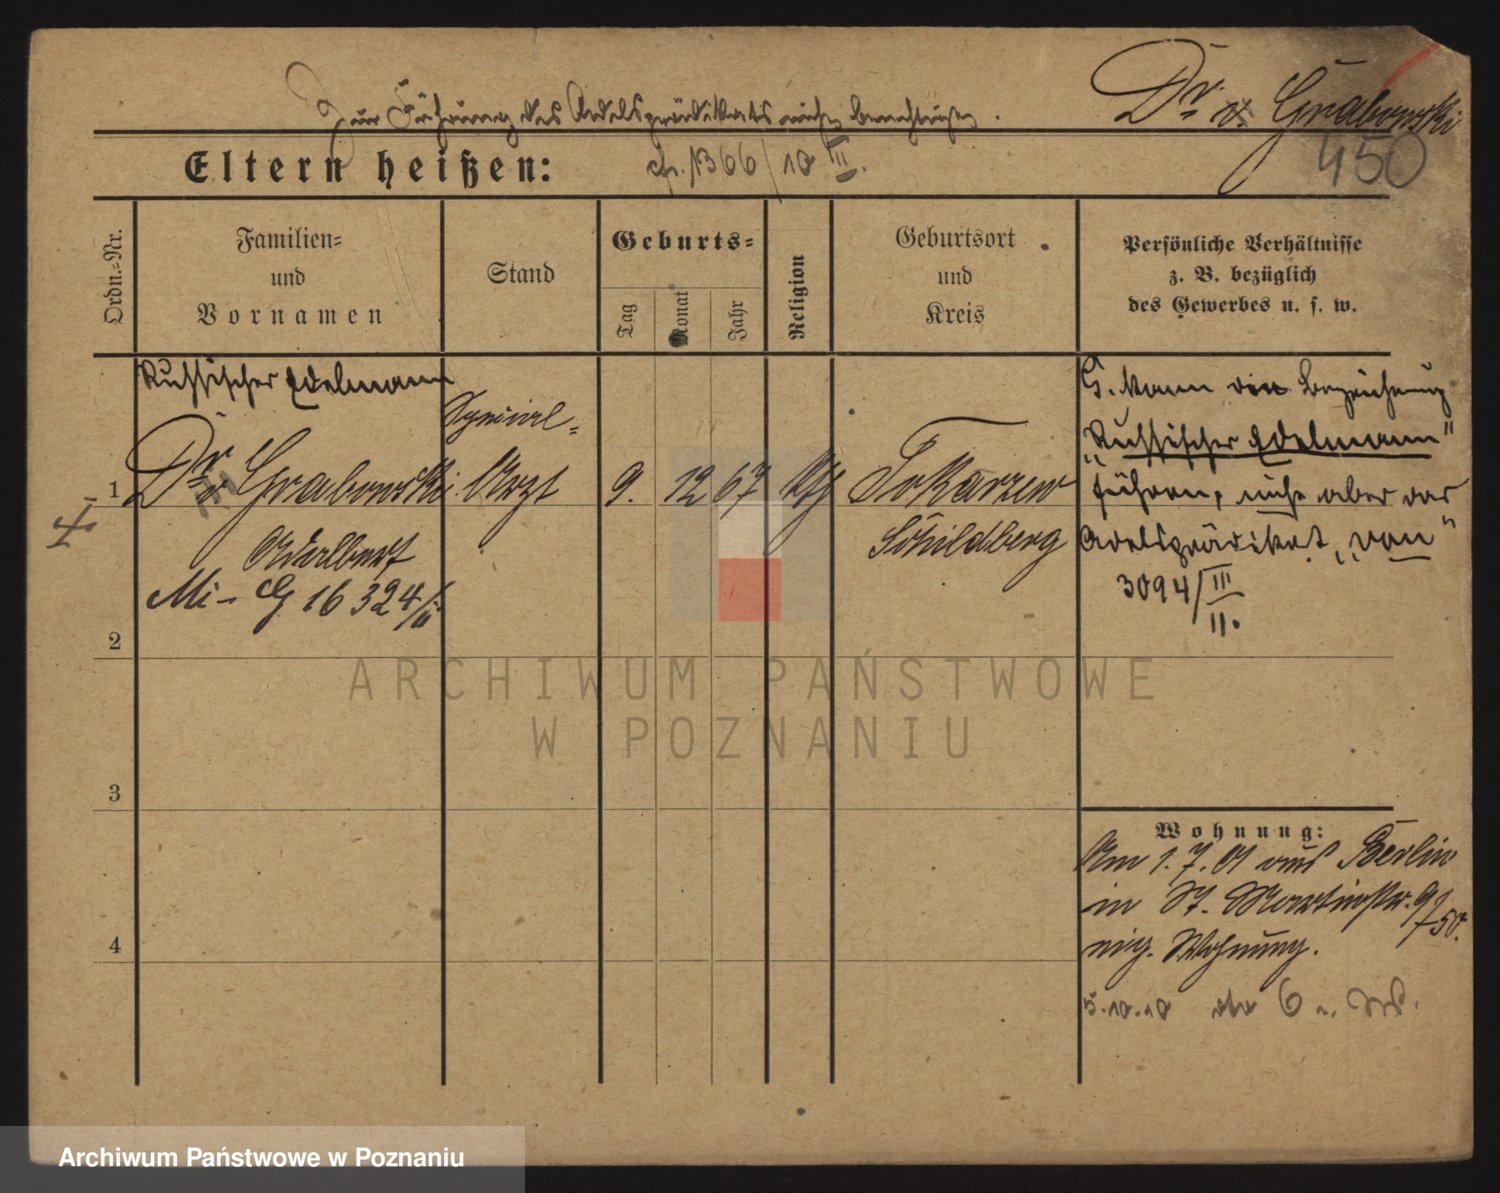 Zur Führung des Adelsprädikats nicht berechtigt.
Dr. v. Grabowski
Eltern heißen:
cfr. 1366/10 III.
450
Ordn.-Nr.
Familien-
und
Vornamen
Stand
Geburts-
Tag
Monat
Jahr
Religion
Geburtsort
und
Kreis
Persönliche Verhältnisse
z. B. bezüglich
des Gewerbes u. s. w.
Russischer Edelmann
1 Dr. v. Grabowski Spezial- Arzt 9. 12 67 Kth Tokarzew
Adalbert Schildberg
Mi- G 16324/II
G. kann die Bezeichnung
"Russischer Edelmann"
führen, nicht aber das
Adelsprädikat „von"
3094/III
II.
2
3
4
Wohnung:
Am 1.7.01 aus Berlin
in St. Martinstr. 9/50.
eig. Wohnung.
5.10.10
ARCHIWUM PAŃSTWOWE
W POZNANIU
Archiwum Państwowe w Poznaniu